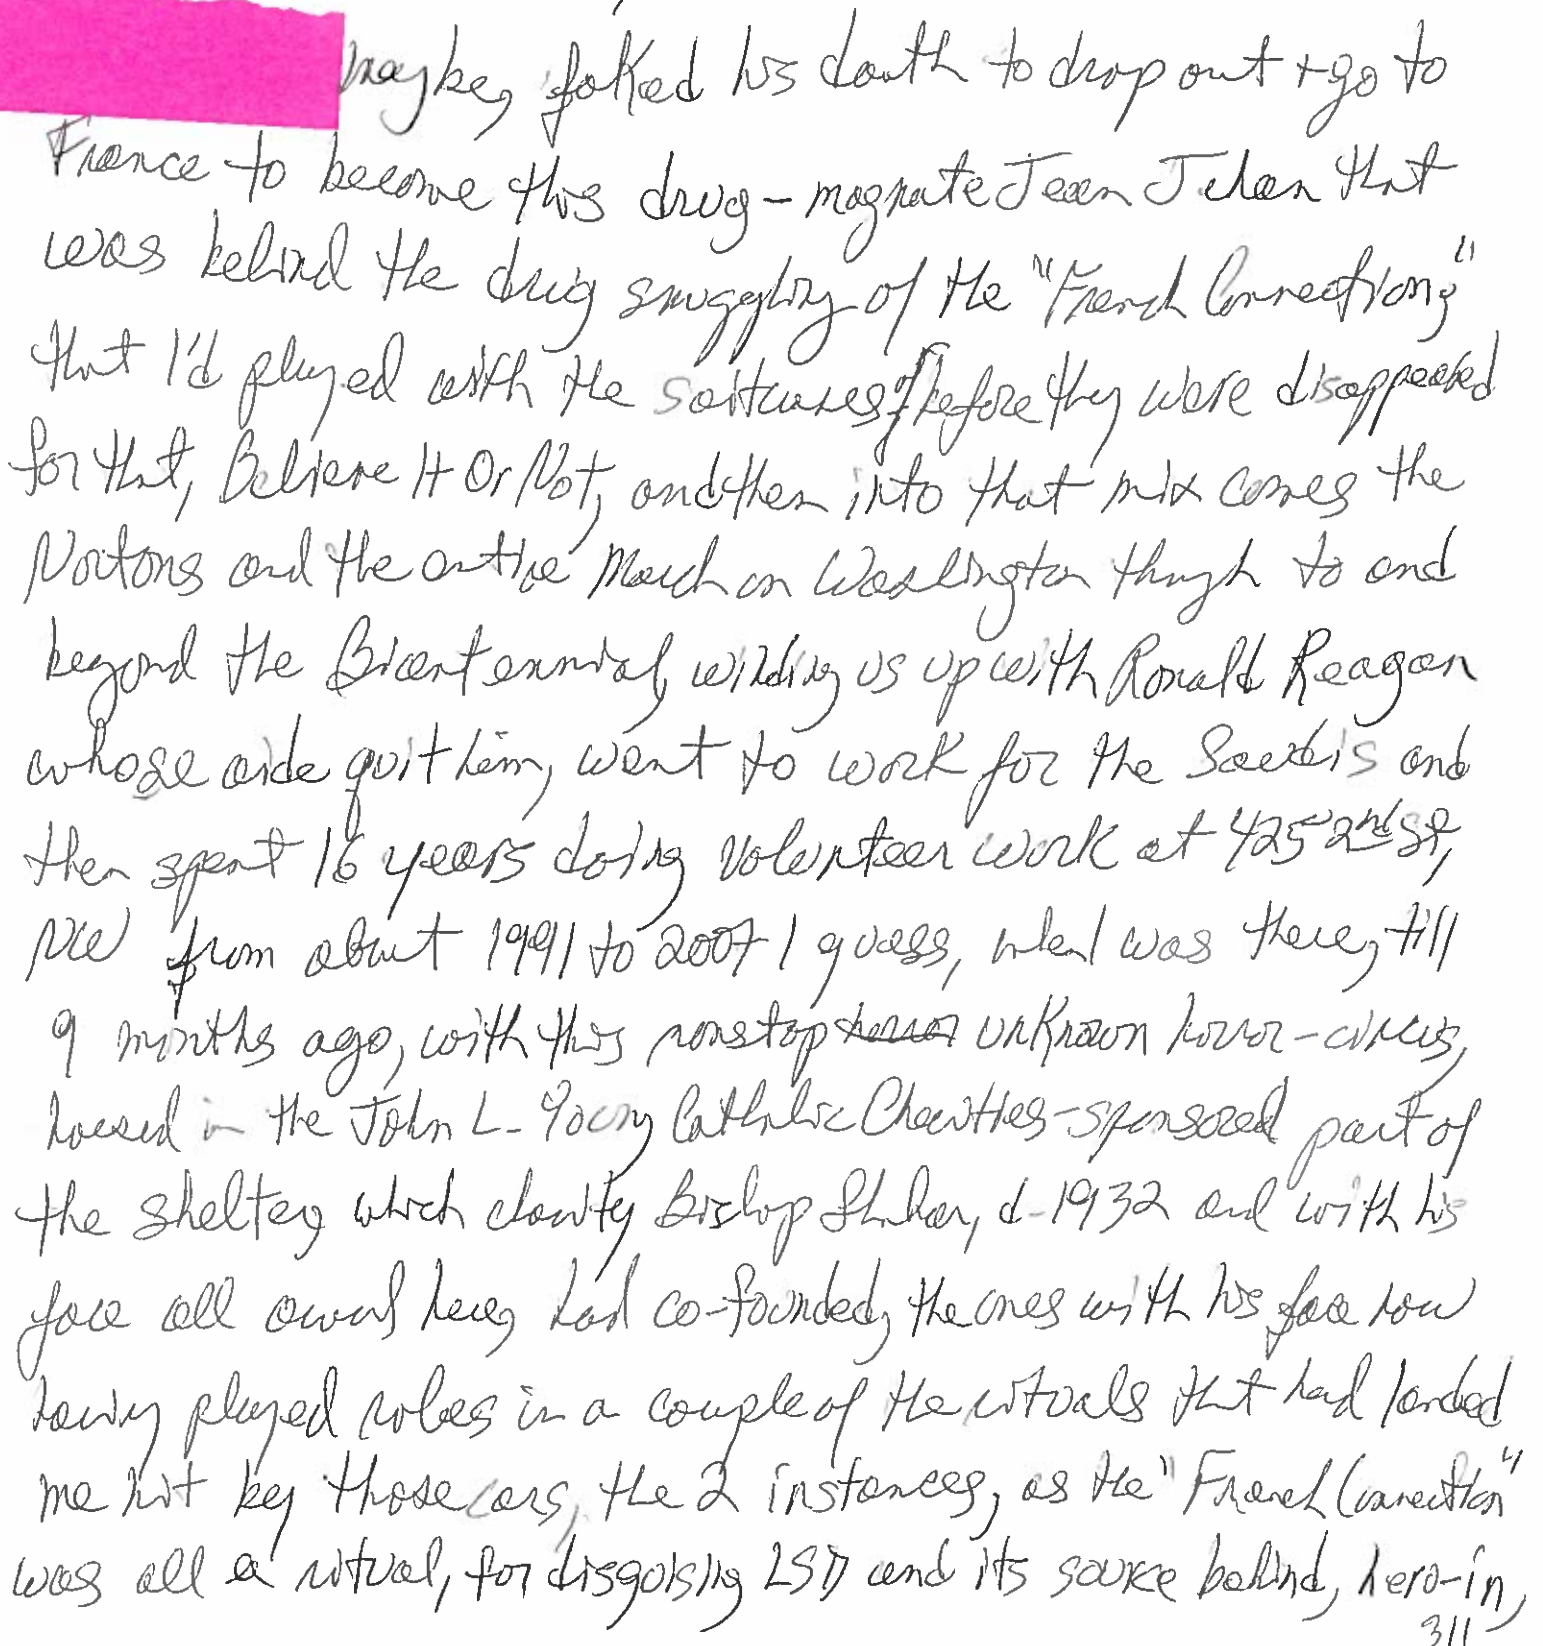 maybe, faked his death to drop out + go to
France to become this drug-magnate Jean Jehan that
was behind the drug smuggling of the "French Connection,"
that I'd played with the suitcases of before they were disappeared
for that, Believe It Or Not, and then into that mix comes the
Nortons and the entire March on Washington though to and
beyond the Bicentennial, winding us up with Ronald Reagan
whose aide quit him, went to work for the Saudis and
then spent 16 years doing volunteer work at 425 2nd St,
NW from about 1991 to 2007 I guess, when I was there, till
9 months ago, with this nonstop unknown horror-circus,
housed in the John L. Young Catholic Charities-sponsored part of
the shelter, which charity Bishop Shahan, d. 1932 and with his
face all around here, had co-founded, the ones with his face now
having played roles in a couple of the rituals that had landed
me hit by those cars, the 2 instances, as the "French Connection"
was all a ritual, for disguising LSD and its source behind, hero-in,
311